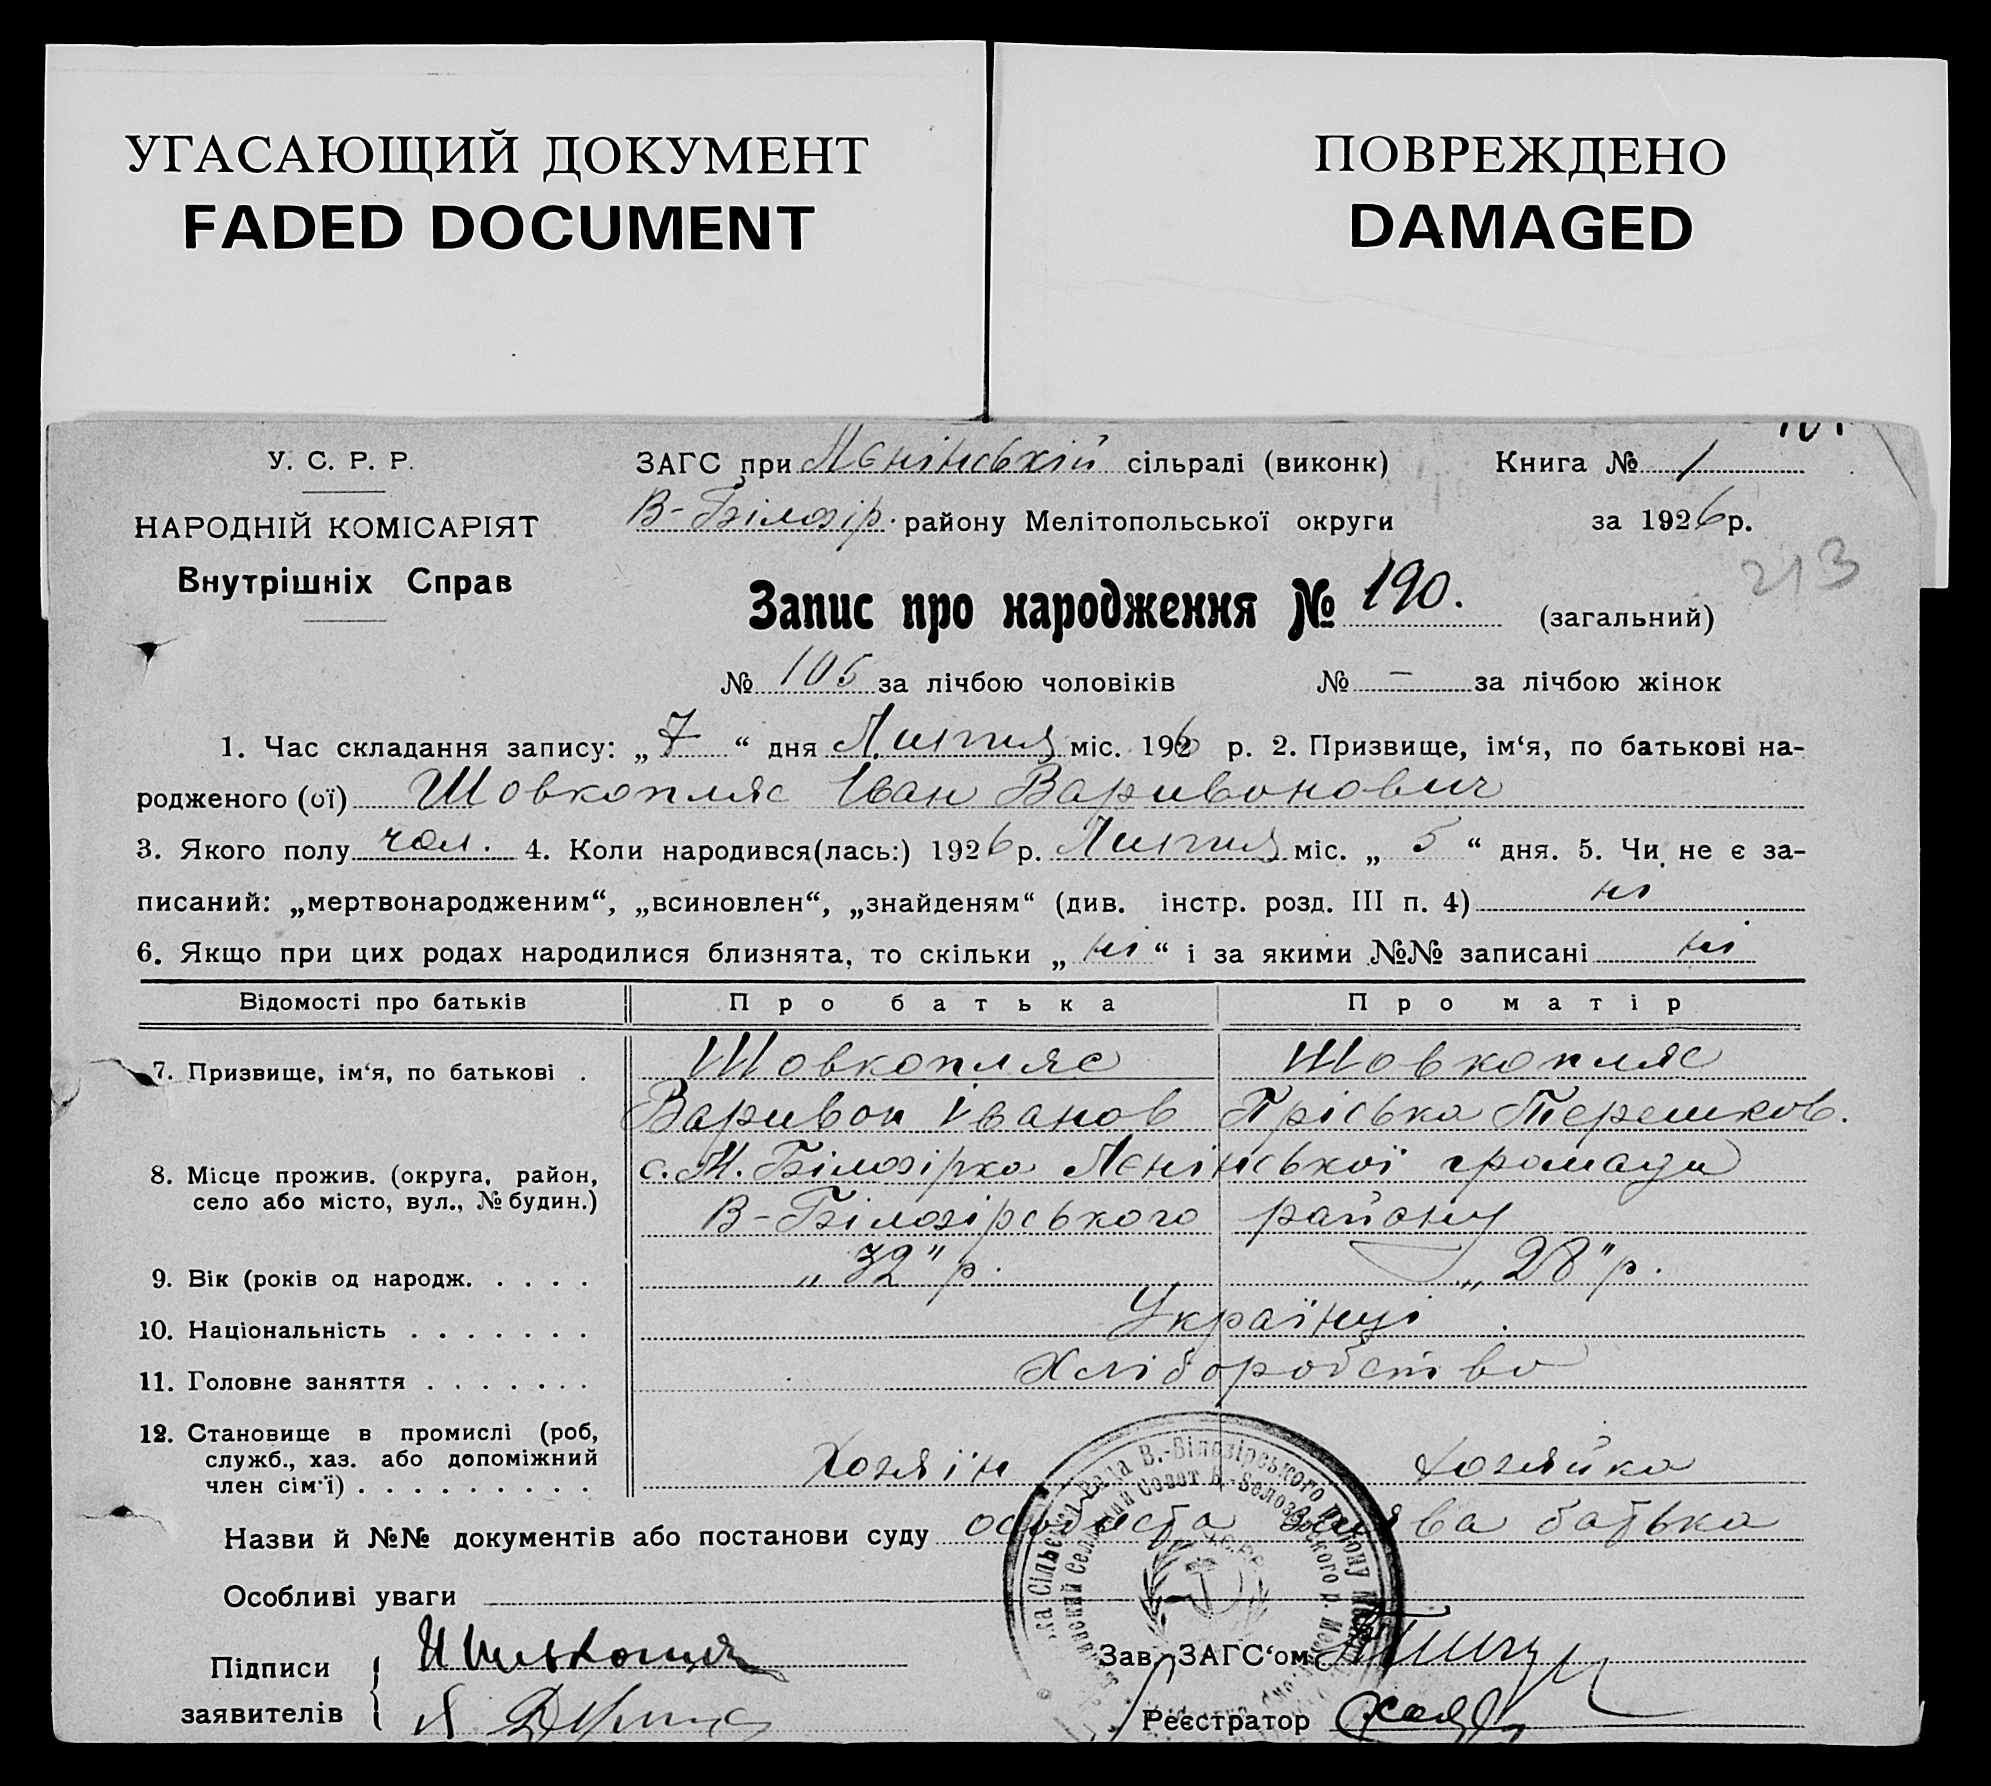 УГАСАЮЩИЙ ДОКУМЕНТ
FADED DOCUMENT
ПОВРЕЖДЕНО
DAMAGED
У. С. Р. Р.
НАРОДНІЙ КОМІСАРІЯТ
Внутрішніх Справ
ЗАГС при Лєнінській сільраді (виконк)
В-Білозір. району Мелітопольської округи
Книга № 1
за 1926 р.
213
Запис про народження № 190. (загальний)
№ 106 за лічбою чоловіків № — за лічбою жінок
1. Час складання запису: „7“ дня Липня міс. 1926 р. 2. Призвище, ім‘я, по батькові на-
родженого (ої) Шовкопляс Іван Варивонович
3. Якого полу чол. 4. Коли народився(лась:) 1926 р. Липня міс. „5“ дня. 5. Чи не є за-
писаний: „мертвонародженим“, „всиновлен“, „знайденям“ (див. інстр. розд. III п. 4) ні
6. Якщо при цих родах народилися близнята, то скільки „ні“ і за якими №№ записані ні
Відомості про батьків Про батька Про матір
7. Призвище, ім‘я, по батькові . Шовкопляс Шовкопляс
Варивон Іванов Пріська Терешков.
8. Місце прожив. (округа, район, с. М. Білозірка Лєнінської громади
село або місто, вул., № будин.) В-Білозірського району
9. Вік (років од народж. . . . . „32" р. „28" р.
10. Національність . . . . . . . Українці
11. Головне заняття . . . . . . . Хліборобство
12. Становище в промислі (роб, служб., хаз. або допоміжний член сім‘ї) . . . . . . . . . Хозяїн Хозяйка
Назви й №№ документів або постанови суду особиста заява батька
Особливі уваги
Підписи
заявителів
Зав. ЗАГС‘ом
Реєстратор